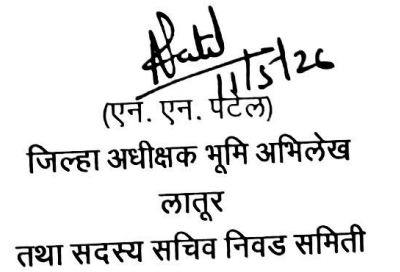 Patel
11/5/26
(एन. एन. पटेल)
जिल्हा अधीक्षक भूमि अभिलेख
लातूर
तथा सदस्य सचिव निवड समिती